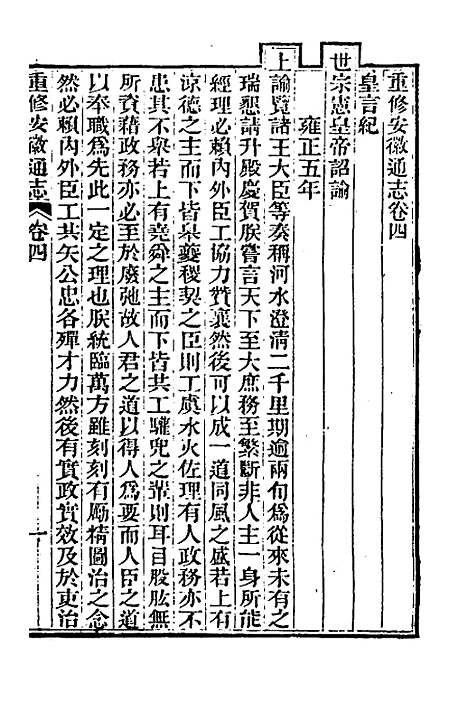 重修安徽通志卷四
皇言紀
世宗憲皇帝詔諭
雍正五年
上諭覽諸王大臣等奏稱河水澄清二千里期逾兩旬為從來未有之
瑞懇請升殿慶賀朕嘗言天下至大庶務至繁斷非人主一身所能
經理必賴內外臣工協力贊襄然後可以成一道同風之盛若上有
涼德之主而下皆皋夔稷契之臣則工虞水火佐理有人政務亦不
患其不舉若上有堯舜之主而下皆共工驩兜之輩則耳目股肱無
所資藉政務亦必至於廢弛故人君之道以得人為要而人臣之道
以奉職為先此一定之理也朕統臨萬方雖刻刻有勵精圖治之念
然必賴內外臣工共矢公忠各殫才力然後有實政實效及於吏治
重修安徽通志 卷四 一